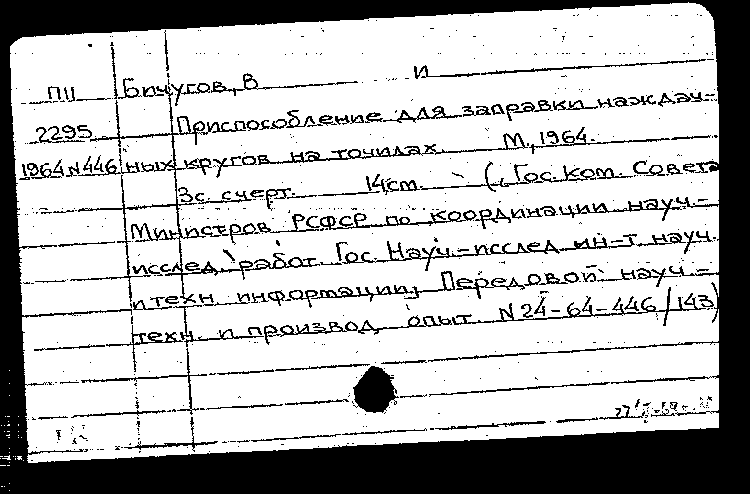 ПЦ Бичугов, В И
2295 Приспособление для заправки наждач-
1964 N 446 ных кругов на точилах. М., 1964.
3с. с черт. 14 cm. (Гос. Ком. Совета
Министров РСФСР по координации науч.-
исслед. работ. Гос. Науч.-исслед ин-т науч.
и техн информации, Передовой науч.-
техн. и производ опыт. N 24-64-446/143)